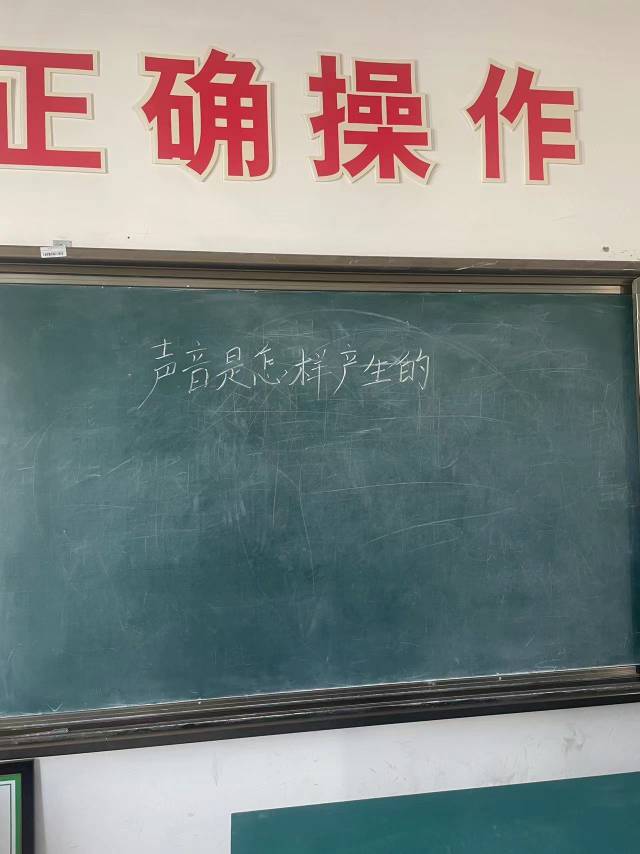 正确操作
声音是怎样产生的